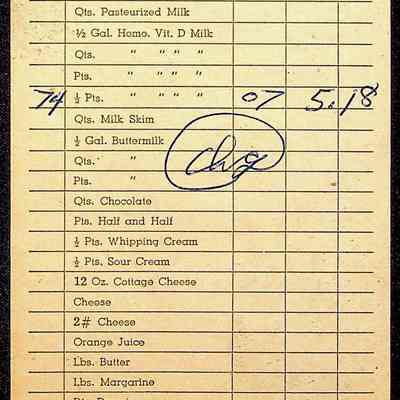 Qts. Pasteurized Milk
½ Gal. Homo. Vit. D Milk
Qts. " " " "
Pts. " " " "
74 ½ Pts. " " " " 07 5.18
Qts. Milk Skim
½ Gal. Buttermilk
Qts. " chg
Pts. "
Qts. Chocolate
Pts. Half and Half
½ Pts. Whipping Cream
½ Pts. Sour Cream
12 Oz. Cottage Cheese
Cheese
2# Cheese
Orange Juice
Lbs. Butter
Lbs. Margarine